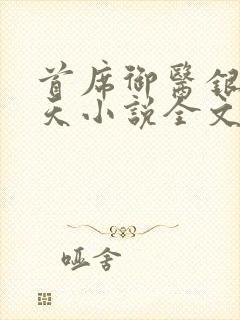 首席御醫銀
天小說全文
哑舍